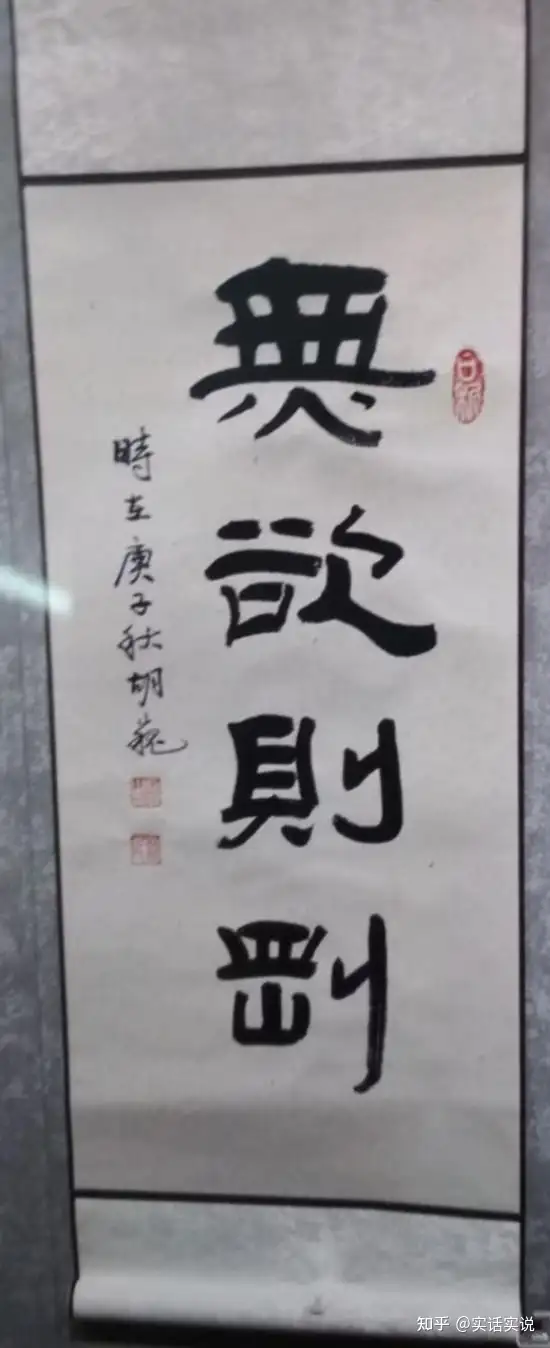 無欲則剛
時在庚子秋胡巍
知乎 @实话实说